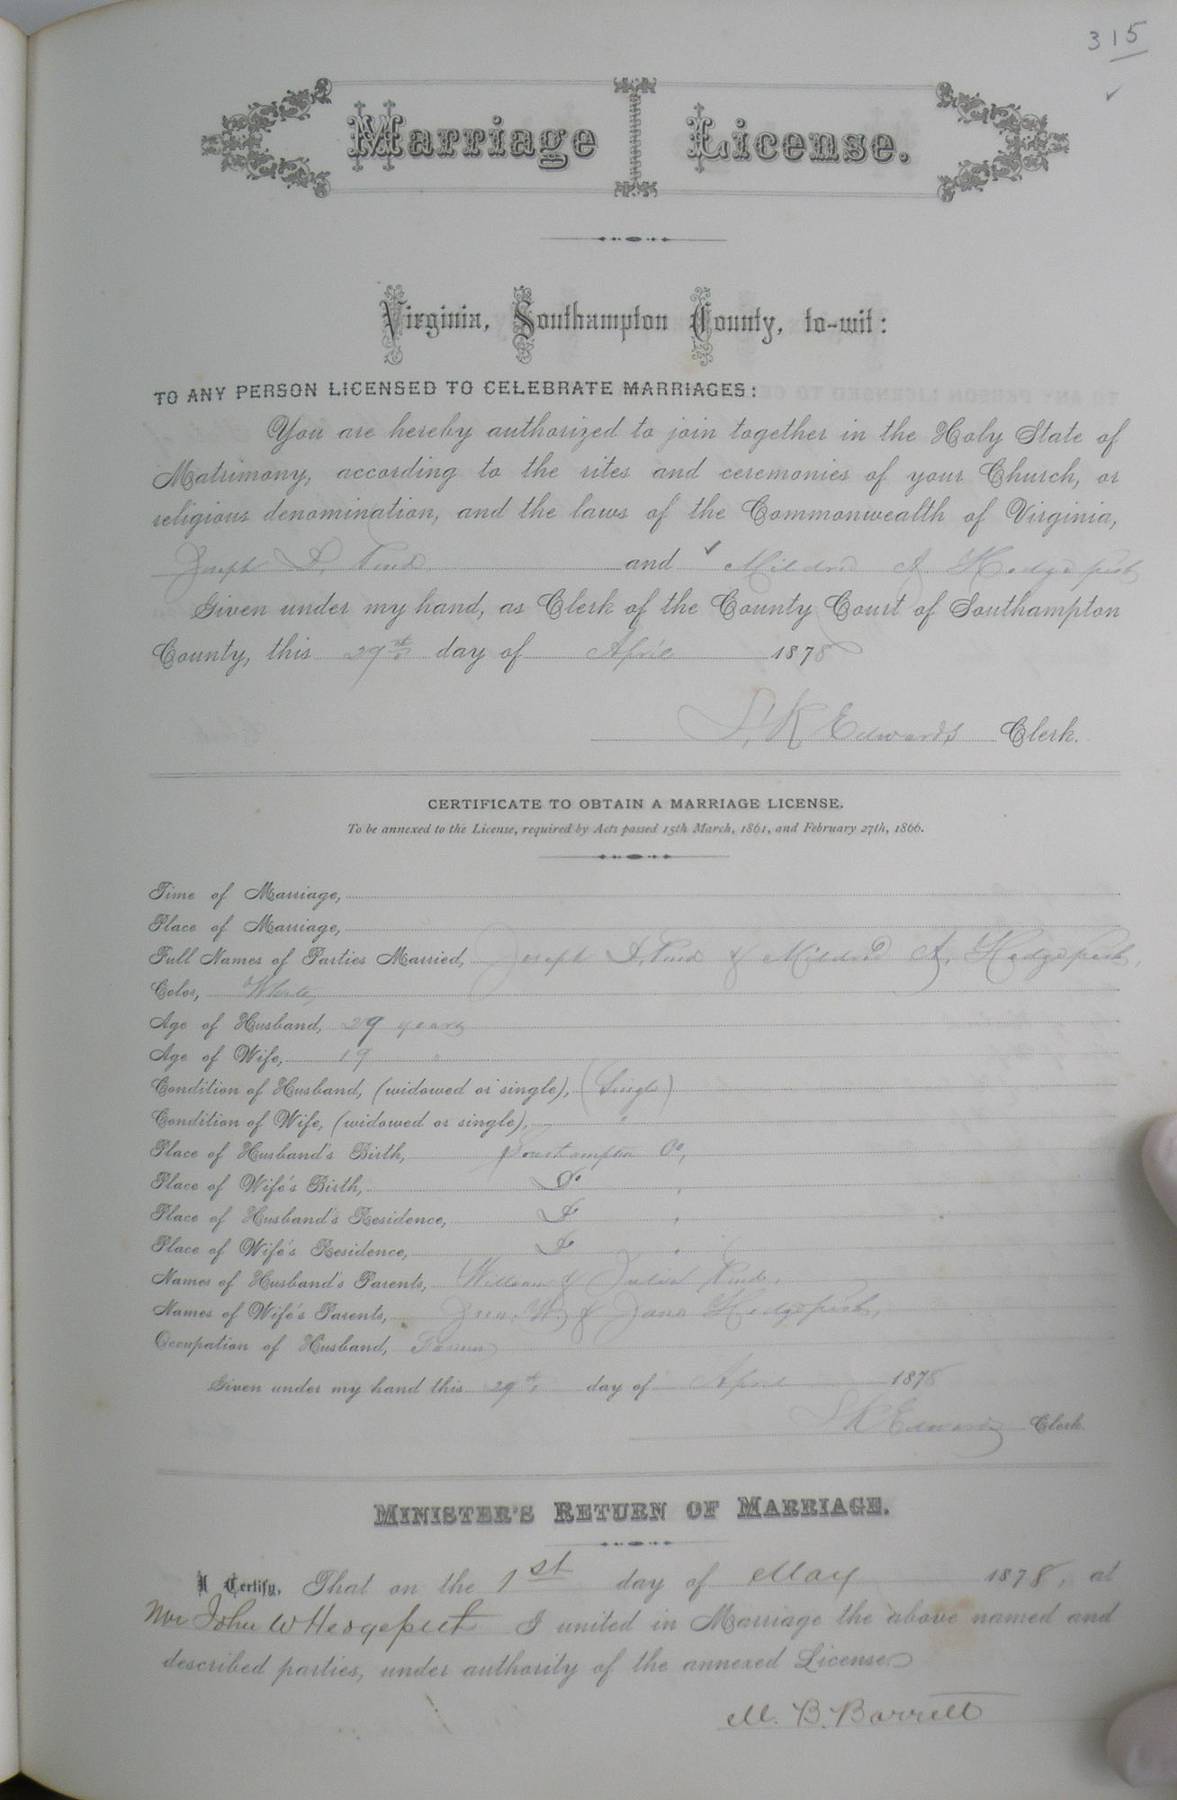 315
Marriage License.
Virginia, Southampton County, to-wit:
TO ANY PERSON LICENSED TO CELEBRATE MARRIAGES:
You are hereby authorized to join together in the Holy State of
Matrimony, according to the rites and ceremonies of your Church, or
religious denomination, and the laws of the Commonwealth of Virginia,
Joseph and Mildred A Hedgepeth
Given under my hand, as Clerk of the County Court of Southampton
County, this 29th day of April 1878
L. K Edwards Clerk.
CERTIFICATE TO OBTAIN A MARRIAGE LICENSE.
To be annexed to the License, required by Acts passed 15th March, 1861, and February 27th, 1866.
Time of Marriage,
Place of Marriage,
Full Names of Parties Married, Joseph & Mildred A. Hedgepeth,
Color, White,
Age of Husband, 29 years
Age of Wife, 19 "
Condition of Husband, (widowed or single), (Single)
Condition of Wife, (widowed or single), "
Place of Husband's Birth, Southampton Co,
Place of Wife's Birth, Do
Place of Husband's Residence, Do
Place of Wife's Residence, Do
Names of Husband's Parents, William & Julia
Names of Wife's Parents, Jno. W. & Jane Hedgepeth,
Occupation of Husband, Farmer
Given under my hand this 29th day of April 1878
L K Edwards Clerk.
MINISTER'S RETURN OF MARRIAGE.
I Certify, That on the 1st day of May 1878, at
Mr John W Hedgepeth I united in Marriage the above named and
described parties, under authority of the annexed License
M. B. Barrett